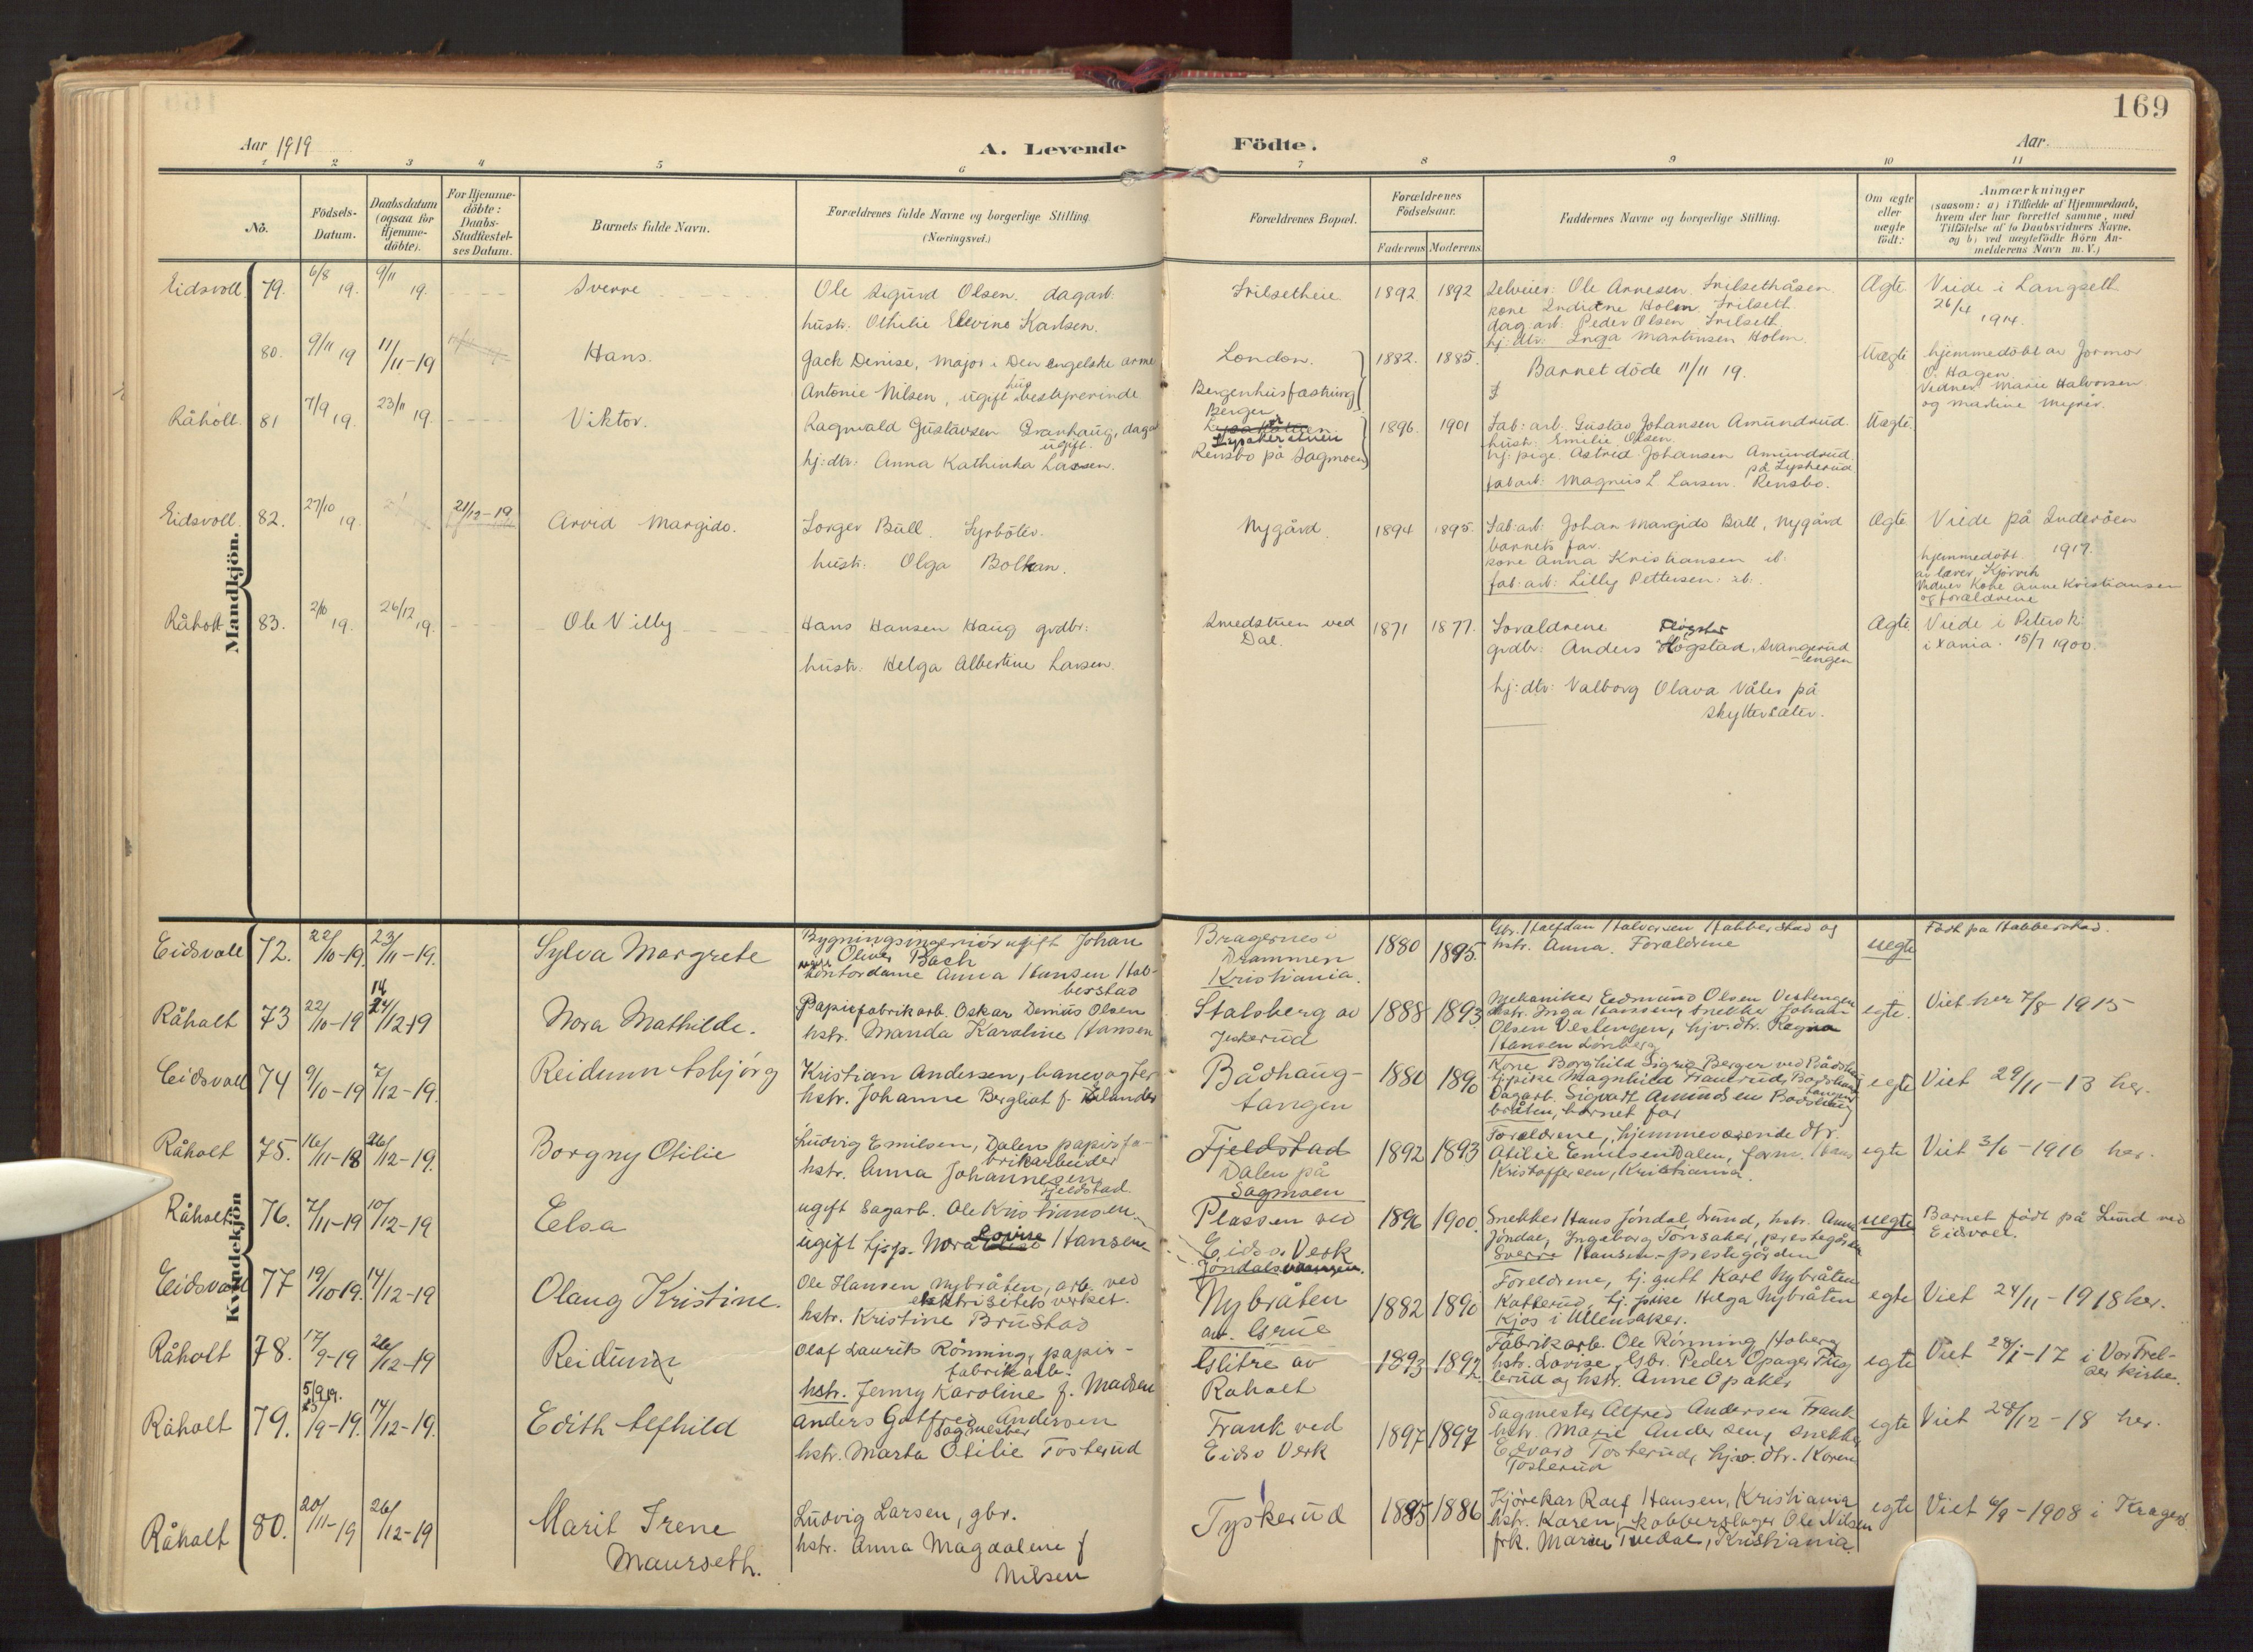 169
Aar 1919
A. Levende
Födte.
Aar
1 2 3 4 5 6 7 8 9 10 11
No.
Födsels-
Datum.
Daabsdatum
(ogsaa for
Hjemme-
döbte).
For Hjemme-
döbte:
Daabs-
Stadfæstel-
ses Datum.
Barnets fulde Navn.
Forældrenes fulde Navne og borgerlige Stilling.
(Næringsvei.)
Forældrenes Bopæl.
Forældrenes
Födselsaar.
Faderens Moderens
Faddernes Navne og borgerlige Stilling.
Om ægte
eller
uægte
födt:
Anmærkninger
(saasom: a) i Tilfælde af Hjemmedaab,
hvem der har forrettet samme, med
Tilföielse af to Daabsvidners Navne,
og b) ved uægtefödte Börn An-
melderens Navn m. V.)
Mandkjön.
Eidsvoll 79. 6/8 19. 9/11 19.
Sverre
Ole Sigurd Olsen. dagarb.
hustr. Othilie Elevine Karlsen.
Trilsetheie
1892 1892
Selveier: Ole Arnesen. Trilsethåsen
kone Indiane Holm. Trilseth.
dag.arb. Peder Olsen Trilseth
hj. dtr. Inga Martinsen Holm.
Ægte
Viede i Langseth
26/4 1914.
80. 9/11 19 11/11-19
Hans.
Jack Denise, Major i Den engelske arme
Antonie Nilsen, ugift hus bestyrerinde
London.
Bergenhus fæstning
1882. 1885.
Barnet döde 11/11 19.
Uægte
hjemmedöbt av Jormor
O. Hagen.
Vidner Marie Halvorsen
og Martine Myrer.
Råholt. 81 7/9 19. 23/11 19.
Viktor.
Ragnvald Gustavsen Granhaug, dagar
ugift.
hj: dtr: Anna Kathinka Larsen.
Berger
Rensbo på Sagmoen
1896. 1901
Fab: arb. Gustav Johansen Amundrud.
hustr: Emilie Olsen.
hj: pige. Astrid Johansen Amundrud.
på Lysherud
fab arb: Magnus L. Larsen. Rensbo.
Uægte.
Eidsvoll. 82. 27/10 19. 21/12-19
Arvid Margido.
Torger Bull. Fyrböter.
hustr: Olga Bolkan.
Nygård.
1894 1895.
Fab: arb: Johan Margido Bull, Nygård
barnets far.
kone Anna Kristiansen ib:
fab: arb: Lilly Pettersen: ib:
Ægte
Viede på Inderöen
1917.
hjemmedöbt
av lærer Kjörvik
Vidner Kone Anne Kristiansen
og forældrene
Råholt 83. 2/10 19. 26/12 19.
Ole Villy
Hans Hansen Haug grdbr:
hustr: Helga Albertine Larsen.
Smedstuen ved
Dal.
1871 1877.
Foraldrene
grdbr: Anders Högstad, Svangerud
engen
hj: dtr: Valborg Olava Våler på
Skyttersæter.
Ægte
Viede i Petersk:
i Xania. 15/7 1900.
Kvindekjön
Eidsvoll 72. 22/10-19. 23/11-19.
Sylva Margrete
Bygningsingeniör ugift Johan
Oliver Bach
kontordame Anna Hansen Hab-
berstad
Bragernes i
Drammen
Kristiania.
1880 1895.
Gbr. Halfdan Halvorsen Habberstad og
hstr. Anna. Foraldrene
uegte
Födt på Habberstad.
Råholt 73 22/10-19 14/12-19
Nora Mathilde.
Papirfabrikarb. Oskar Denius Olsen
hstr. Manda Karoline Hansen
Stalsberg av
Jeskerud
1888 1893
Mekaniker Edmund Olsen Vestengen
hstr. Inga Hansen, snekker Johan
Olsen Vestengen, hjv. dtr. Ragna
Hansen Lönberg
egte.
Viet her 7/8-1915
Eidsvoll 74 9/10-19 7/12-19.
Reidunn Asbjörg
Kristian Andersen, banevogter
hstr. Johanne Bergliot f. Elander
Bådhaug-
tangen
1886 1890
Kone Borghild Sigrid Berger ved Bådshaug
tj.pike Magnhild Framrud, Bådshaug
Dagarb. Sigvart Amundsen Bådshaug
bråten, barnet far
egte
Viet 29/11-13 her.
Råholt 75. 16/11-18 26/12-19.
Borgny Otilie
Ludvig Emilsen, Dalen papirfa-
brikarbeider
hstr. Anna Johannesen
Fjeldstad
Fjeldstad
Dalen på
Sagmoen
1892 1893
Foreldrene, hjemmeværende dtr.
Otilie Emilsen Dalen, form. Hans
Kristoffersen, Kristiania.
egte
Viet 3/6-1916 her.
Råholt 76. 7/11-19 10/12-19
Elsa
ugift Sagarb. Ole Kristiansen
ugift tjp. Nora Lovise Hansen
Plassen ved
Eidsv. Verk
1896 1900.
Snekker Hans Jöndal, Lund, hstr. Anna
Jöndal, Ingeborg Tönsaker, prestegården
Sverre Hansen - prestegården
uegte
Barnet födt på Lund ved
Eidsvoll.
Eidsvoll 77 19/10-19. 14/12-19
Olaug Kristine.
Ole Hansen Nybråten, arb. ved
elektrisitets verket.
hstr. Kristine Brustad
Nybråten
av. Grue
1882 1890
Foreldrene, tj. gutt Karl Nybråten
Katterud, tj. pike Helga Nybråten
Kjos i Ullensaker.
egte
Viet 24/11-1918 her.
Råholt 78. 17/9-19 26/12-19
Reidun
Olaf Laurits Rönning, papir-
fabrikarb.
hstr. Jenny Karoline f. Madsen
Glitre av
Råholt
1893 1892.
Fabrikarb. Ole Rönning Hoberg
hstr. Lovise, Gbr. Peder Opager Fug
lerud og hstr. Anne Opaker
egte
Viet 28/1-17 i Vor Frel-
ser kirke.
Råholt 79. 5/9 19. 14/12-19.
Edith Alfhild
Anders Gotfred Andersen
Sagmester
hstr. Marta Otilie Tosterud
Frank ved
Eidsv Verk
1897 1897
Sagmester Alfred Andersen Frank
hstr. Marie Andersen, snekker
Edvard Tosterud, hjv. dtr. Karen
Tosterud
egte
Viet 28/12-18 her.
Råholt 80. 20/11-19 26/12-19
Marit Irene
Maurseth.
Ludvig Larsen, gbr.
hstr. Anna Magdalene f
Nilsen
Tyskerud
1885 1886
Kjörekar Rolf Hansen, Kristiania
hstr. Karen, kobberslager Ole Nilsen
frk. Marie Tvedal, Kristiania.
egte
Viet 6/9-1908 i Kragerö.